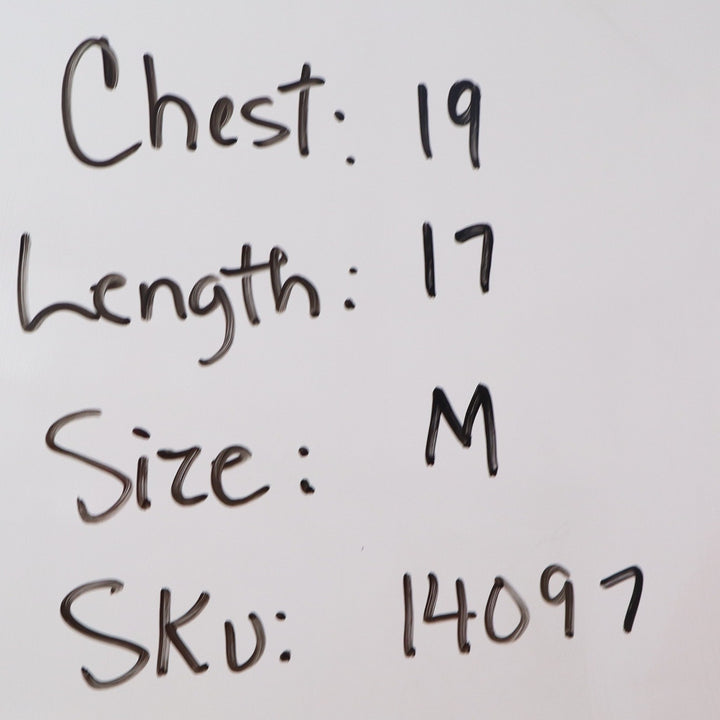 Chest: 19
Length: 17
Size: M
SKU: 14097